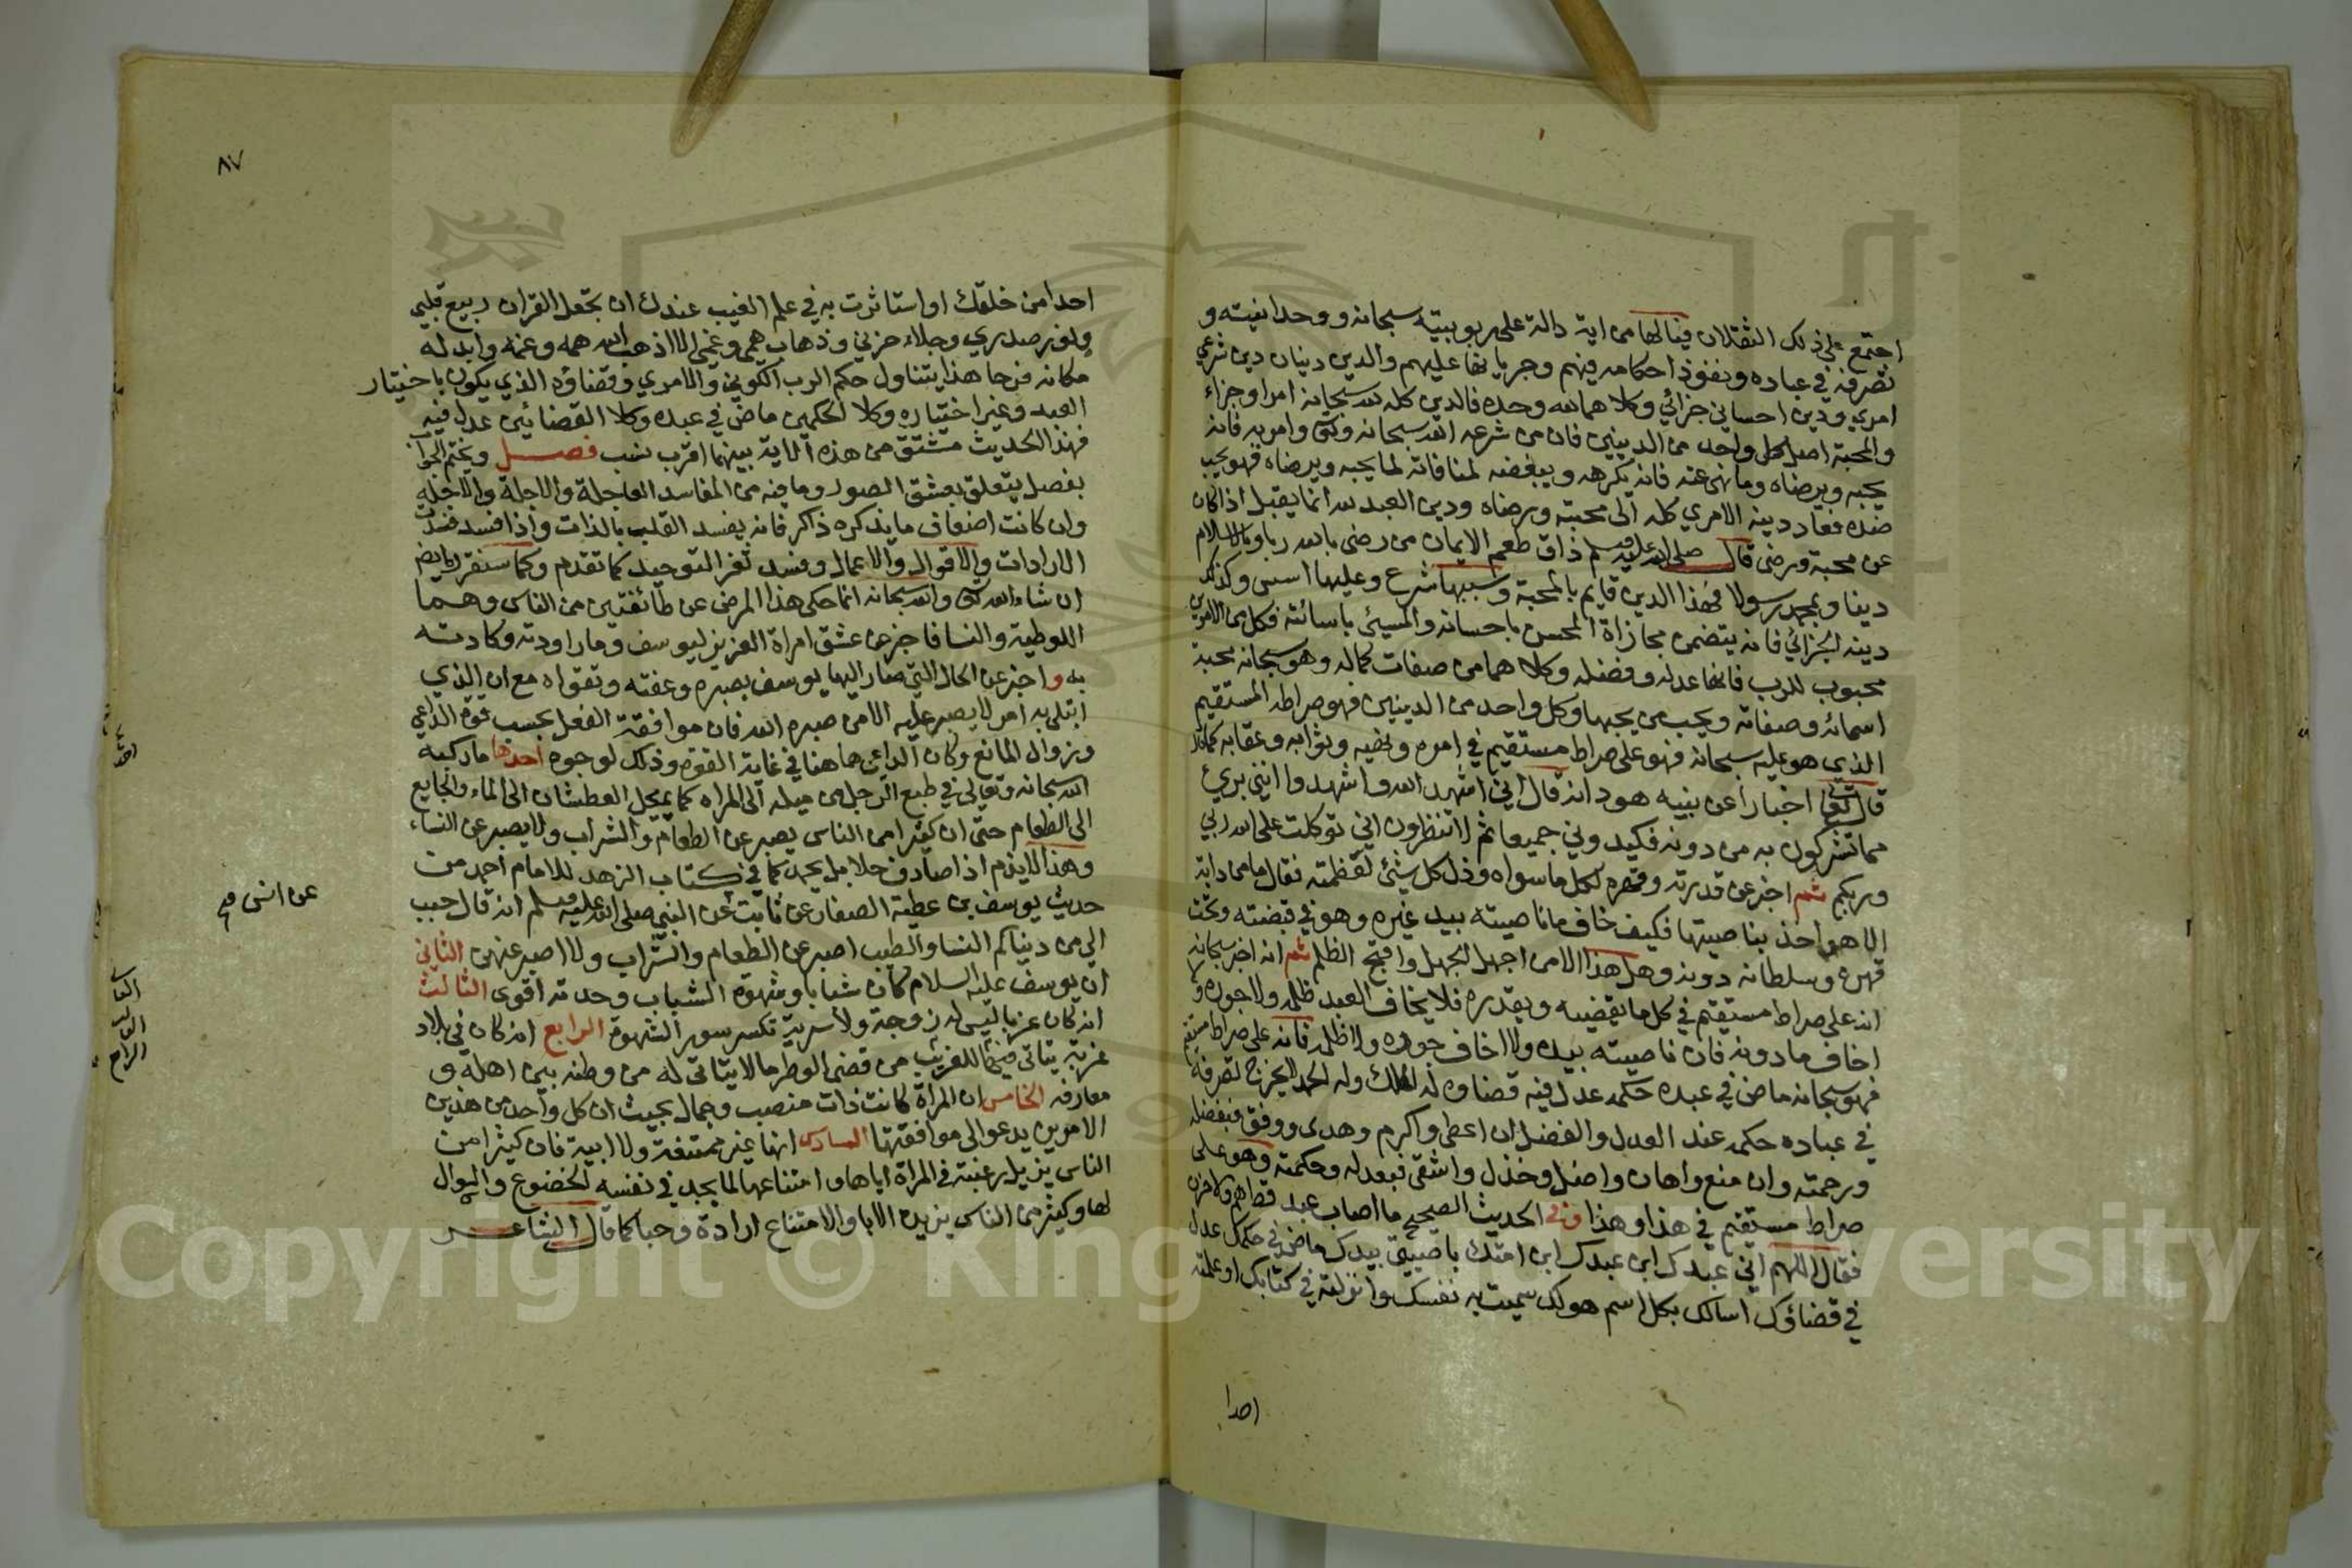 اجتمع على ذلك الثقلان فيالها من اية دالة على ربوبيته سبحانه ووحدانيته و
تصرفه في عباده ونفوذ احكامه فيهم وجريانها عليهم والدين دينان دين شرعي
امري ودين احساني جزائي وكلاهما لله وحده فالدين كله لله سبحانه امرا وجزاء
والمحبة اصل كل واحد من الدينين فان من شرعه الله سبحانه وتعالى وامر به فانه
يحبه ويرضاه وما نهى عنه فانه يكرهه ويبغضه لمنافاته لما يحبه ويرضاه فهو يحب
ضده فعاد دينه الامري كله الى محبته ورضاه ودين العبد لله انما يقبل اذا كان
عن محبة ورضى قال صلى الله عليه وسلم ذاق طعم الايمان من رضى بالله ربا وبالاسلام
دينا وبمحمد رسولا فهذا الدين قايم بالمحبة وسببها شرع وعليها اسس وكذلك
دينه الجزائي فانه يتضمن مجازاة المحسن باحسانه والمسيئ باسائته فكل من الامرين
محبوب للرب فانهما عدله وفضله وكلاهما من صفات كماله وهو سبحانه يحب
اسمائه وصفاته ويحب من يحبها وكل واحد من الدينين فهو صراطه المستقيم
الذي هو عليه سبحانه فهو على صراط مستقيم في امره ونهيه وثوابه وعقابه كما
قال تعالى اخبارا عن نبيه هود انه قال اني اشهد الله واشهدوا انني بريئ
مما تشركون به من دونه فكيدوني جميعا ثم لا تنظرون اني توكلت على الله ربي
وربكم ثم اخبر عن قدرته وقهره لكل ما سواه وذل كل شئ لعظمته فقال ما من دابة
الا هو اخذ بناصيتها فكيف خاف ما ناصيته بيد غيره وهو في قبضته وتحت
قهره وسلطانه دونه وهل هذا الا من اجهل الجهل واقبح الظلم ثم انه اخبر سبحانه
انه على صراط مستقيم في كل ما يقضيه ويقدره فلا يخاف العبد ظلمه ولا جوره ولا
اخاف ما دونه فان ناصيته بيده ولا اخاف جوره ولا ظلمه فانه على صراط مستقيم
فهو سبحانه ماض في عبده حكمه عدل فيه قضاوه له الملك وله الحمد لا يخرج تصرفه
في عباده حكمه عند العدل والفضل ان اعطى واكرم وهدى ووفق فبفضله
ورحمته وان منع واهان واضل وخذل واشقى فبعدله وحكمته وهو على
صراط مستقيم في هذا وهذا وفي الحديث الصحيح ما اصاب عبد قط هم ولا حزن
فقال اللهم اني عبدك ابن عبدك ابن امتك ناصيتي بيدك ماض في حكمك عدل
في قضاؤك اسالك بكل اسم هو لك سميت به نفسك وانزلته في كتابك او علمته
احدا
٨٧
احدا من خلقك او استاثرت به في علم الغيب عندك ان تجعل القران ربيع قلبي
ونور صدري وجلاء حزني وذهاب همي وغمي الا اذهب الله همه وغمه وابدله
مكانه فرحا هذا يتناول حكم الرب الكوني والامري وقضاؤه الذي يكون باختيار
العبد وغير اختياره وكلا الحكمين ماض في عبده وكلا القضائين عدل فيه
فهذا الحديث مشتق من هذه الاية بينهما اقرب نسب فصل ويختم الجواب
بفصل يتعلق بعشق الصور وما فيه من المفاسد العاجلة والاجلة
وان كانت اضعاف ما يذكره ذاكر فانه يفسد القلب بالذات واذا فسد فسدت
الارادات والاقوال والاعمال وفسد ثغر التوحيد كما تقدم وكما سنقرره ايضا
ان شاء الله تعالى والله سبحانه انما حكى هذا المرض عن طائفتين من الناس وهما
اللوطية والنسا فاخبر عن عشق امراة العزيز ليوسف وما راودته وكادته
به واخبر عن الحال التي صار اليها يوسف بصبره وعفته وتقواه مع ان الذي
ابتلي به امر لا يصبر عليه الا من صبره الله فان موافقة الفعل بحسب قوة الداعي
وزوال المانع وكان الداعي هاهنا في غاية القوة وذلك لوجوه احدها ما ركبه
الله سبحانه وتعالى في طبع الرجل من ميله الى المراه كما يميل العطشان الى الماء والجايع
الى الطعام حتى ان كثيرا من الناس يصبر عن الطعام والشراب ولا يصبر عن النساء
وهذا لا يذم اذا صادف حلا بل يحمد كما في كتاب الزهد للامام احمد من
حديث يوسف بن عطية الصفار عن ثابت عن النبي صلى الله عليه وسلم انه قال حبب
عن انس صح
الي من دنياكم النسا والطيب اصبر عن الطعام والشراب ولا اصبر عنهن الثاني
ان يوسف عليه السلام كان شابا وشهوة الشباب وحدته اقوى الثالث
انه كان عزبا ليس له زوجة ولا سرية تكسر سورة الشهوة الرابع انه كان في بلاد
غربة يتاتى فيها للغريب من قضى الوطر ما لا يتاتى له من وطنه بين اهله و
معارفه الخامس ان المراة كانت ذات منصب وجمال بحيث ان كل واحد من هذين
الامرين يدعو الى موافقتها السادس انها غير ممتنعة ولا ابية فان كثيرا من
الناس يزيل رغبته في المراة اباها وامتناعها لما يجد في نفسه الخضوع والسوال
لها وكثير من الناس يزيده الابا والامتناع ارادة وحبا كما قال الشاعر